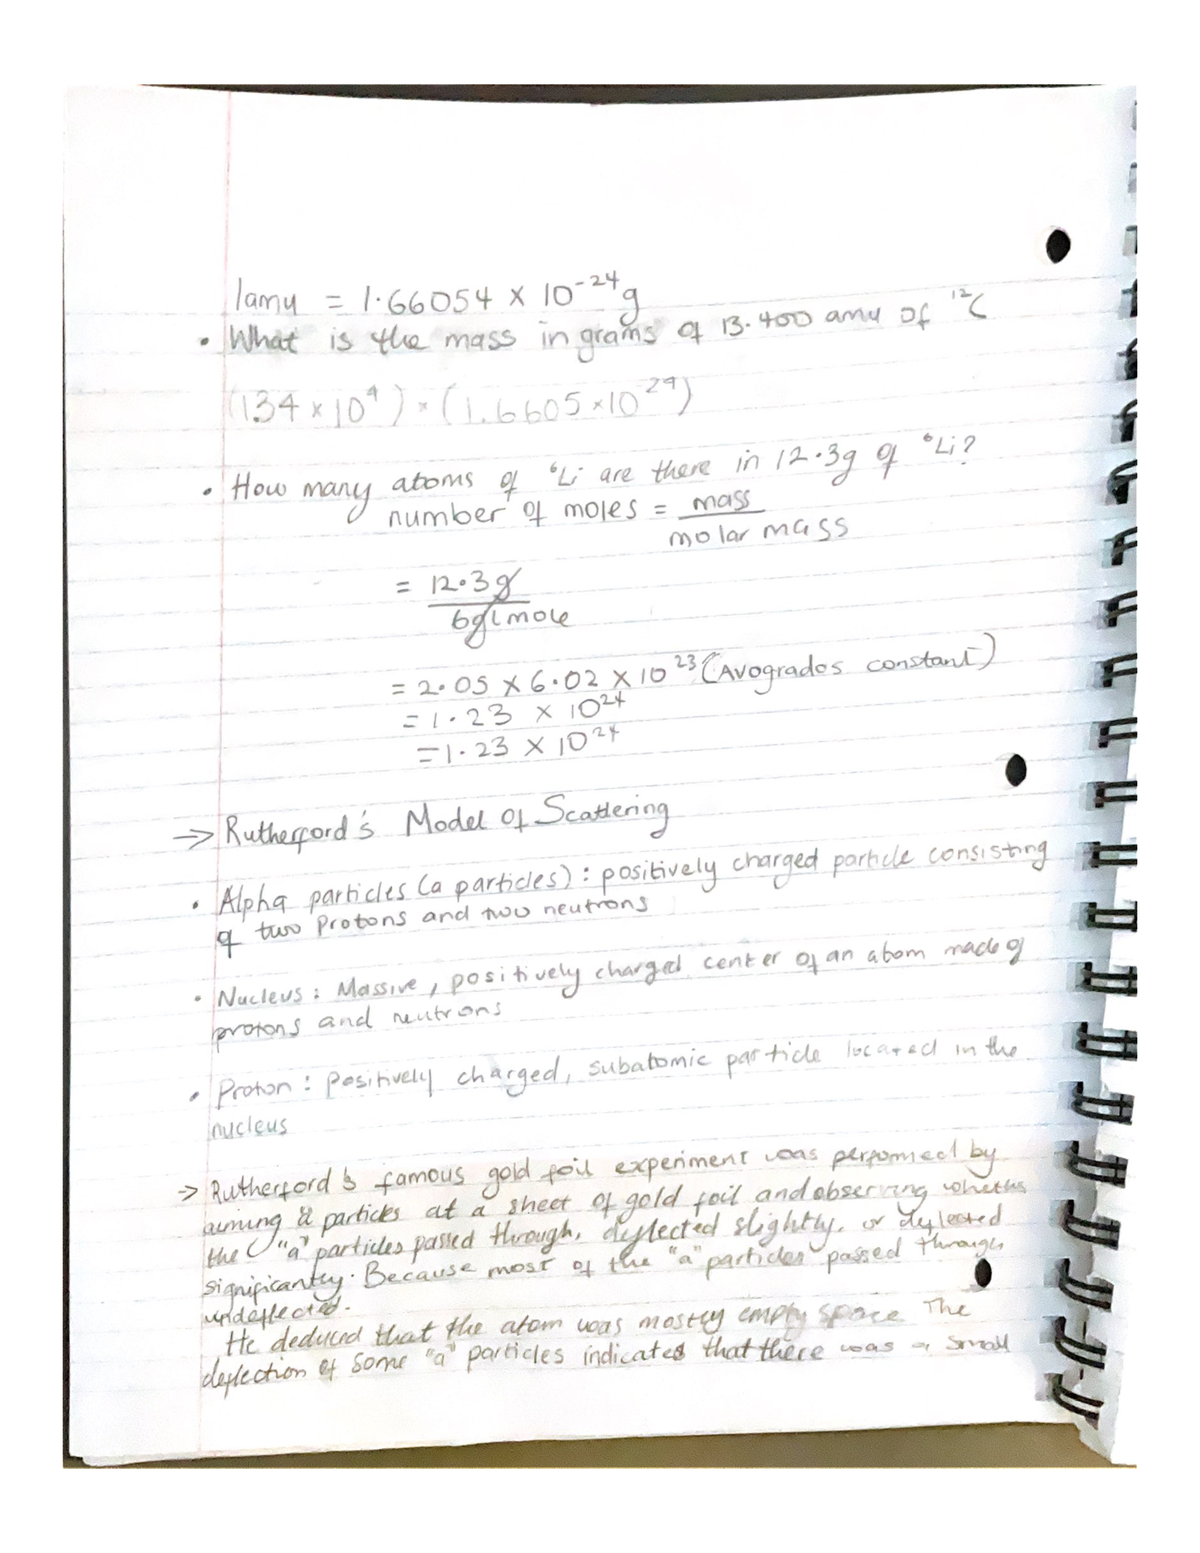 1amu = 1.66054 × 10⁻²⁴g
• What is the mass in grams of 13.400 amu of ¹²C
(134 × 10⁴) × (1.6605 × 10²⁴)
• How many atoms of ⁶Li are there in 12.3g of ⁶Li?
number of moles = mass
molar mass
= 12.3g
6g/mole
= 2.05 × 6.02 × 10²³ (Avogrados constant)
= 1.23 × 10²⁴
= 1.23 × 10²⁴
→ Rutherford's Model of Scattering
• Alpha particles (a particles) : positively charged particle consisting
of two Protons and two neutrons
• Nucleus : Massive, positively charged center of an atom made of
protons and neutrons
• Proton : Positively charged, subatomic particle located in the
nucleus
→ Rutherford's famous gold foil experiment was performed by
aiming a particles at a sheet of gold foil and observing whether
the "a" particles passed through, deflected slightly, or deflected
significantly. Because most of the "a" particles passed through
undeflected.
He deduced that the atom was mostly empty space The
deflection of some "a" particles indicated that there was a small